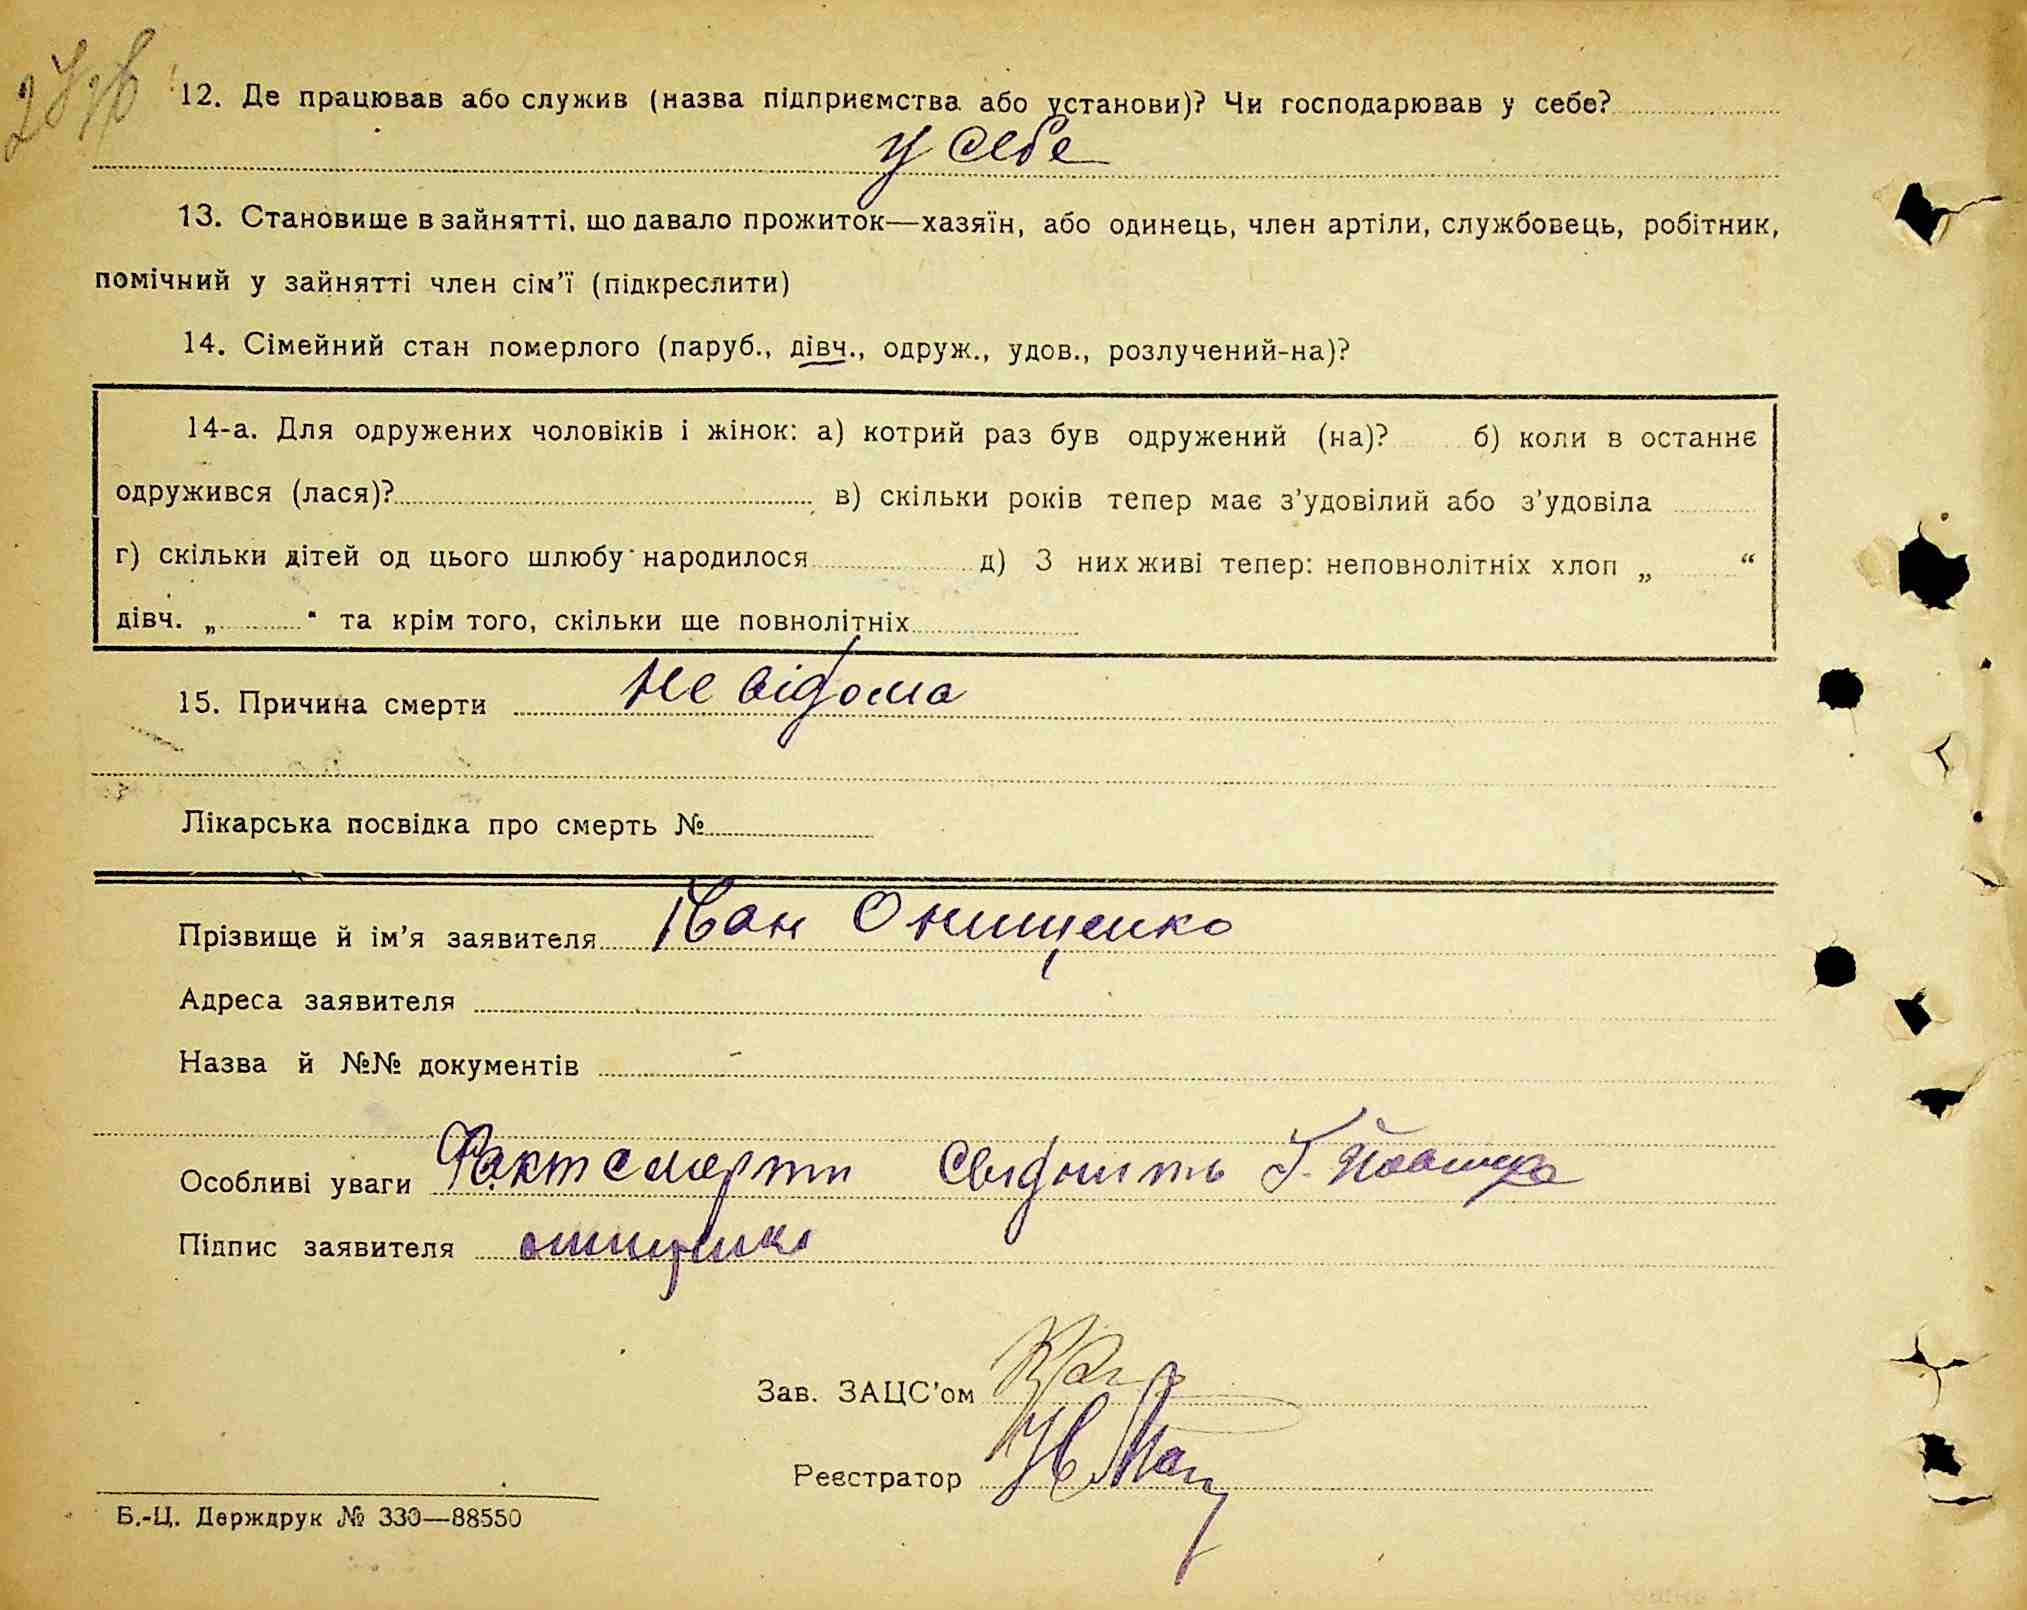 12. Де працював або служив (назва підприємства або установи)? Чи господарював у себе?
у себе
13. Становище в зайнятті, що давало прожиток—хазяїн, або одинець, член артіли, службовець, робітник,
помічний у зайнятті член сім’ї (підкреслити)
14. Сімейний стан померлого (паруб., дівч., одруж., удов., розлучений-на)?
14-а. Для одружених чоловіків і жінок: а) котрий раз був одружений (на)? б) коли в останнє
одружився (лася)? в) скільки років тепер має з’удовілий або з’удовіла
г) скільки дітей од цього шлюбу народилося д) З них живі тепер: неповнолітніх хлоп „ “
дівч. „ “ та крім того, скільки ще повнолітніх
15. Причина смерти не відома
Лікарська посвідка про смерть №
Прізвище й ім’я заявителя Іван Онищенко
Адреса заявителя
Назва й №№ документів
Особливі уваги Факт смерти свідчить Г.
Підпис заявителя онищенко
Зав. ЗАЦС’ом
Реєстратор
Б.-Ц. Держдрук № 330—88550